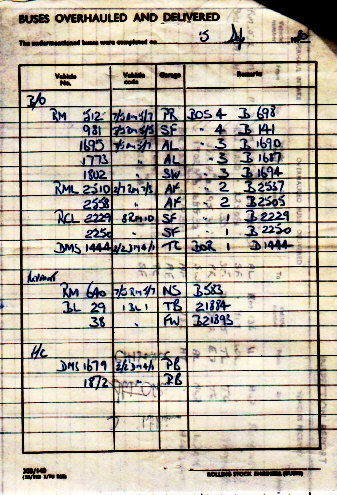 BUSES OVERHAULED AND DELIVERED
The undermentioned buses were completed on 5
Vehicle No. Vehicle code Garage Remarks
B/O
RM 512 PR BOS 4 B 698
981 SF " 4 B 141
1695 AL " 3 B 1690
1773 AL " 3 B 1687
1802 SW " 3 B 1694
RML 2510 AF " 2 B 2537
2558 AF " 2 B 2505
RCL 2229 8RM10 SF " 1 B 2229
2250 SF " 1 B 2250
DMS 1444 TC BOR 1 D 1444
RM 640 NS B583
BL 29 1BL1 TB 21884
38 FW B21893
H/C
DMS 1679 PB
1872 PB
ROLLING STOCK ENGINEER (BUSES)